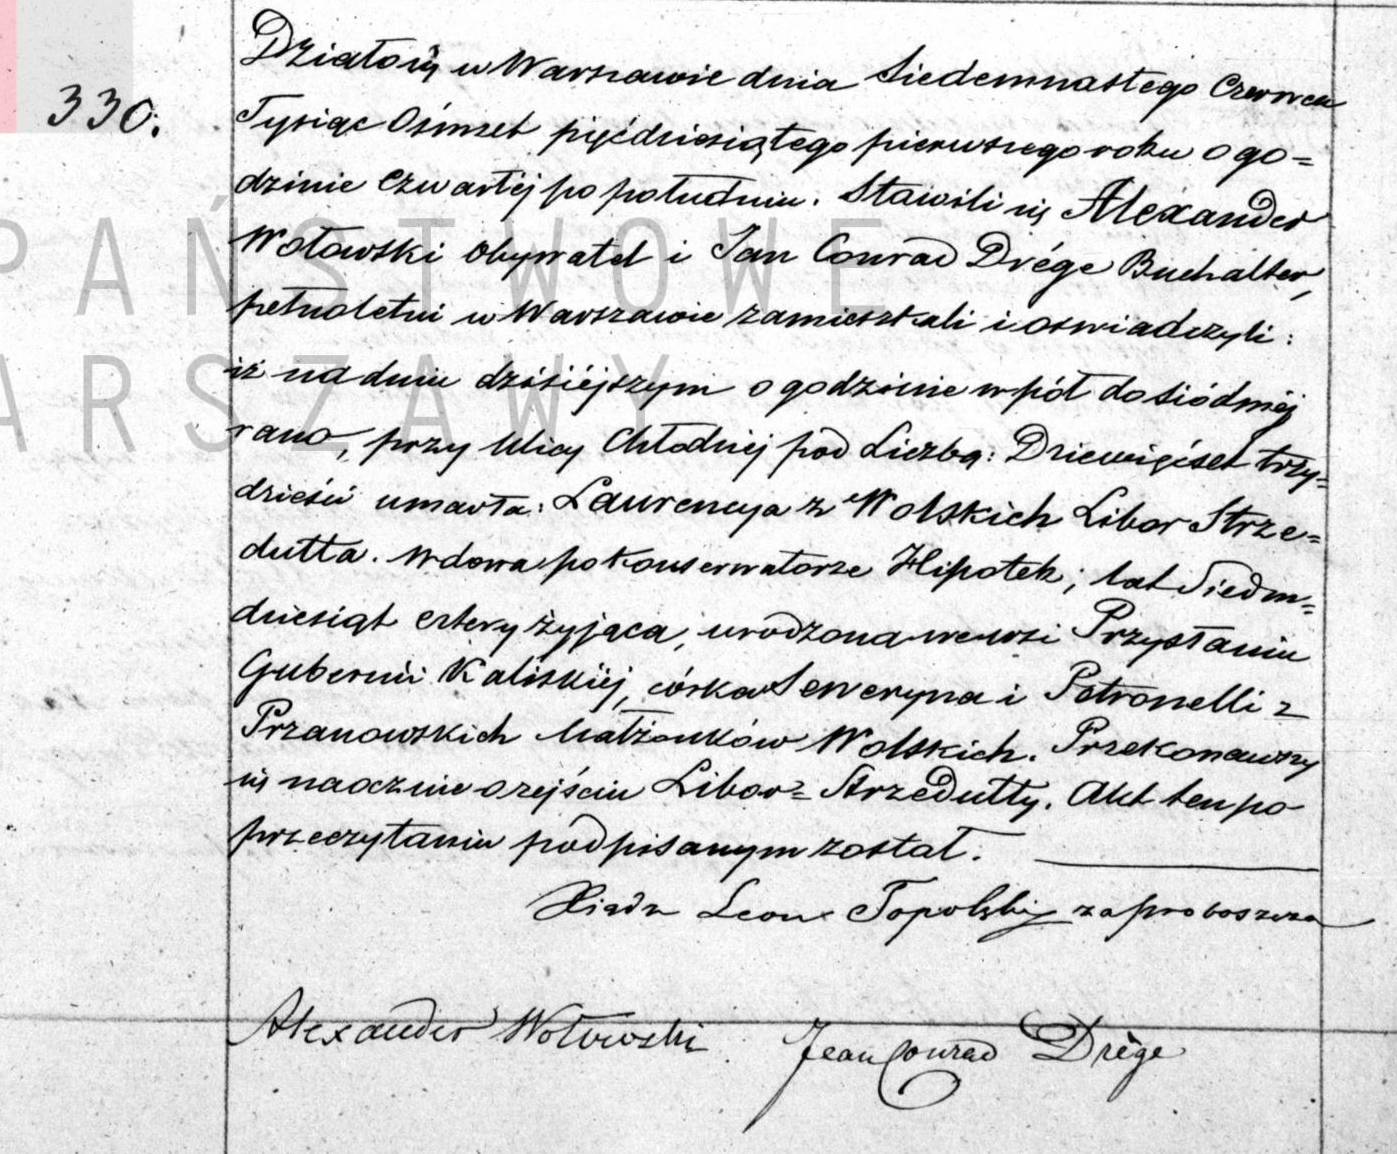 330.
Działo się w Warszawie dnia Siedemnastego Czerwca
Tysiąc Ośmset pięćdziesiątego pierwszego roku o go=
dzinie czwartéj po południu. Stawili się Alexander
Wołowski obywatel i Jan Conrad Drége Buchalter,
pełnoletni w Warszawie zamieszkali i oswiadczyli:
iż na dniu dzisiéjszym o godzinie wpół do siódméj
rano, przy Ulicy Chłodnéj pod Liczbą: Dziewięćset trzy=
dzieści umarła: Laurencya z Wolskich Libor Strze=
dutta. wdowa po Konserwatorze Hipotek; lat Siedm=
dziesiąt cztery żyjąca, urodzona we wsi Przystaniu
Gubernii Kaliskiéj, córka Seweryna i Petronelli z
Przanowskich Małżonków Wolskich. Przekonawszy
się naocznie o zejściu Libor= Strzedutty. Akt ten po
przeczytaniu podpisanym został.
Xiądz Leon Topolski za proboszcza
Alexander Wołowski Jean Conrad Drège
PAŃSTWOWE
ARSZAWY